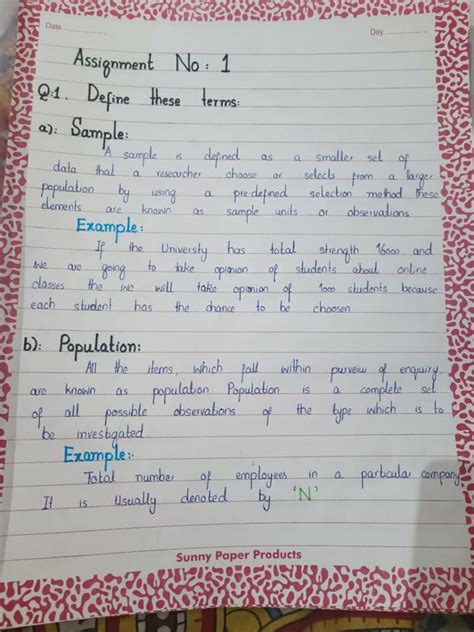 Date
Day
Assignment No: 1
Q:1. Define these terms:
a): Sample:
A sample is defined as a smaller set of
data that a researcher choose or selects from a larger
population by using a pre-defined selection method these
elements are known as sample units or observations.
Example:
If the Universty has total strength 16000 and
we are going to take opinion of students about online
classes the we will take opinion of 1000 students because
each student has the chance to be choosen.
b): Population:
All the items, which fall within purveiw of enquiry,
are known as population. Population is a complete set
of all possible observations of the type which is to
be investigated.
Example:-
Total number of employees in a particular company.
It is usually denoted by 'N'
Sunny Paper Products